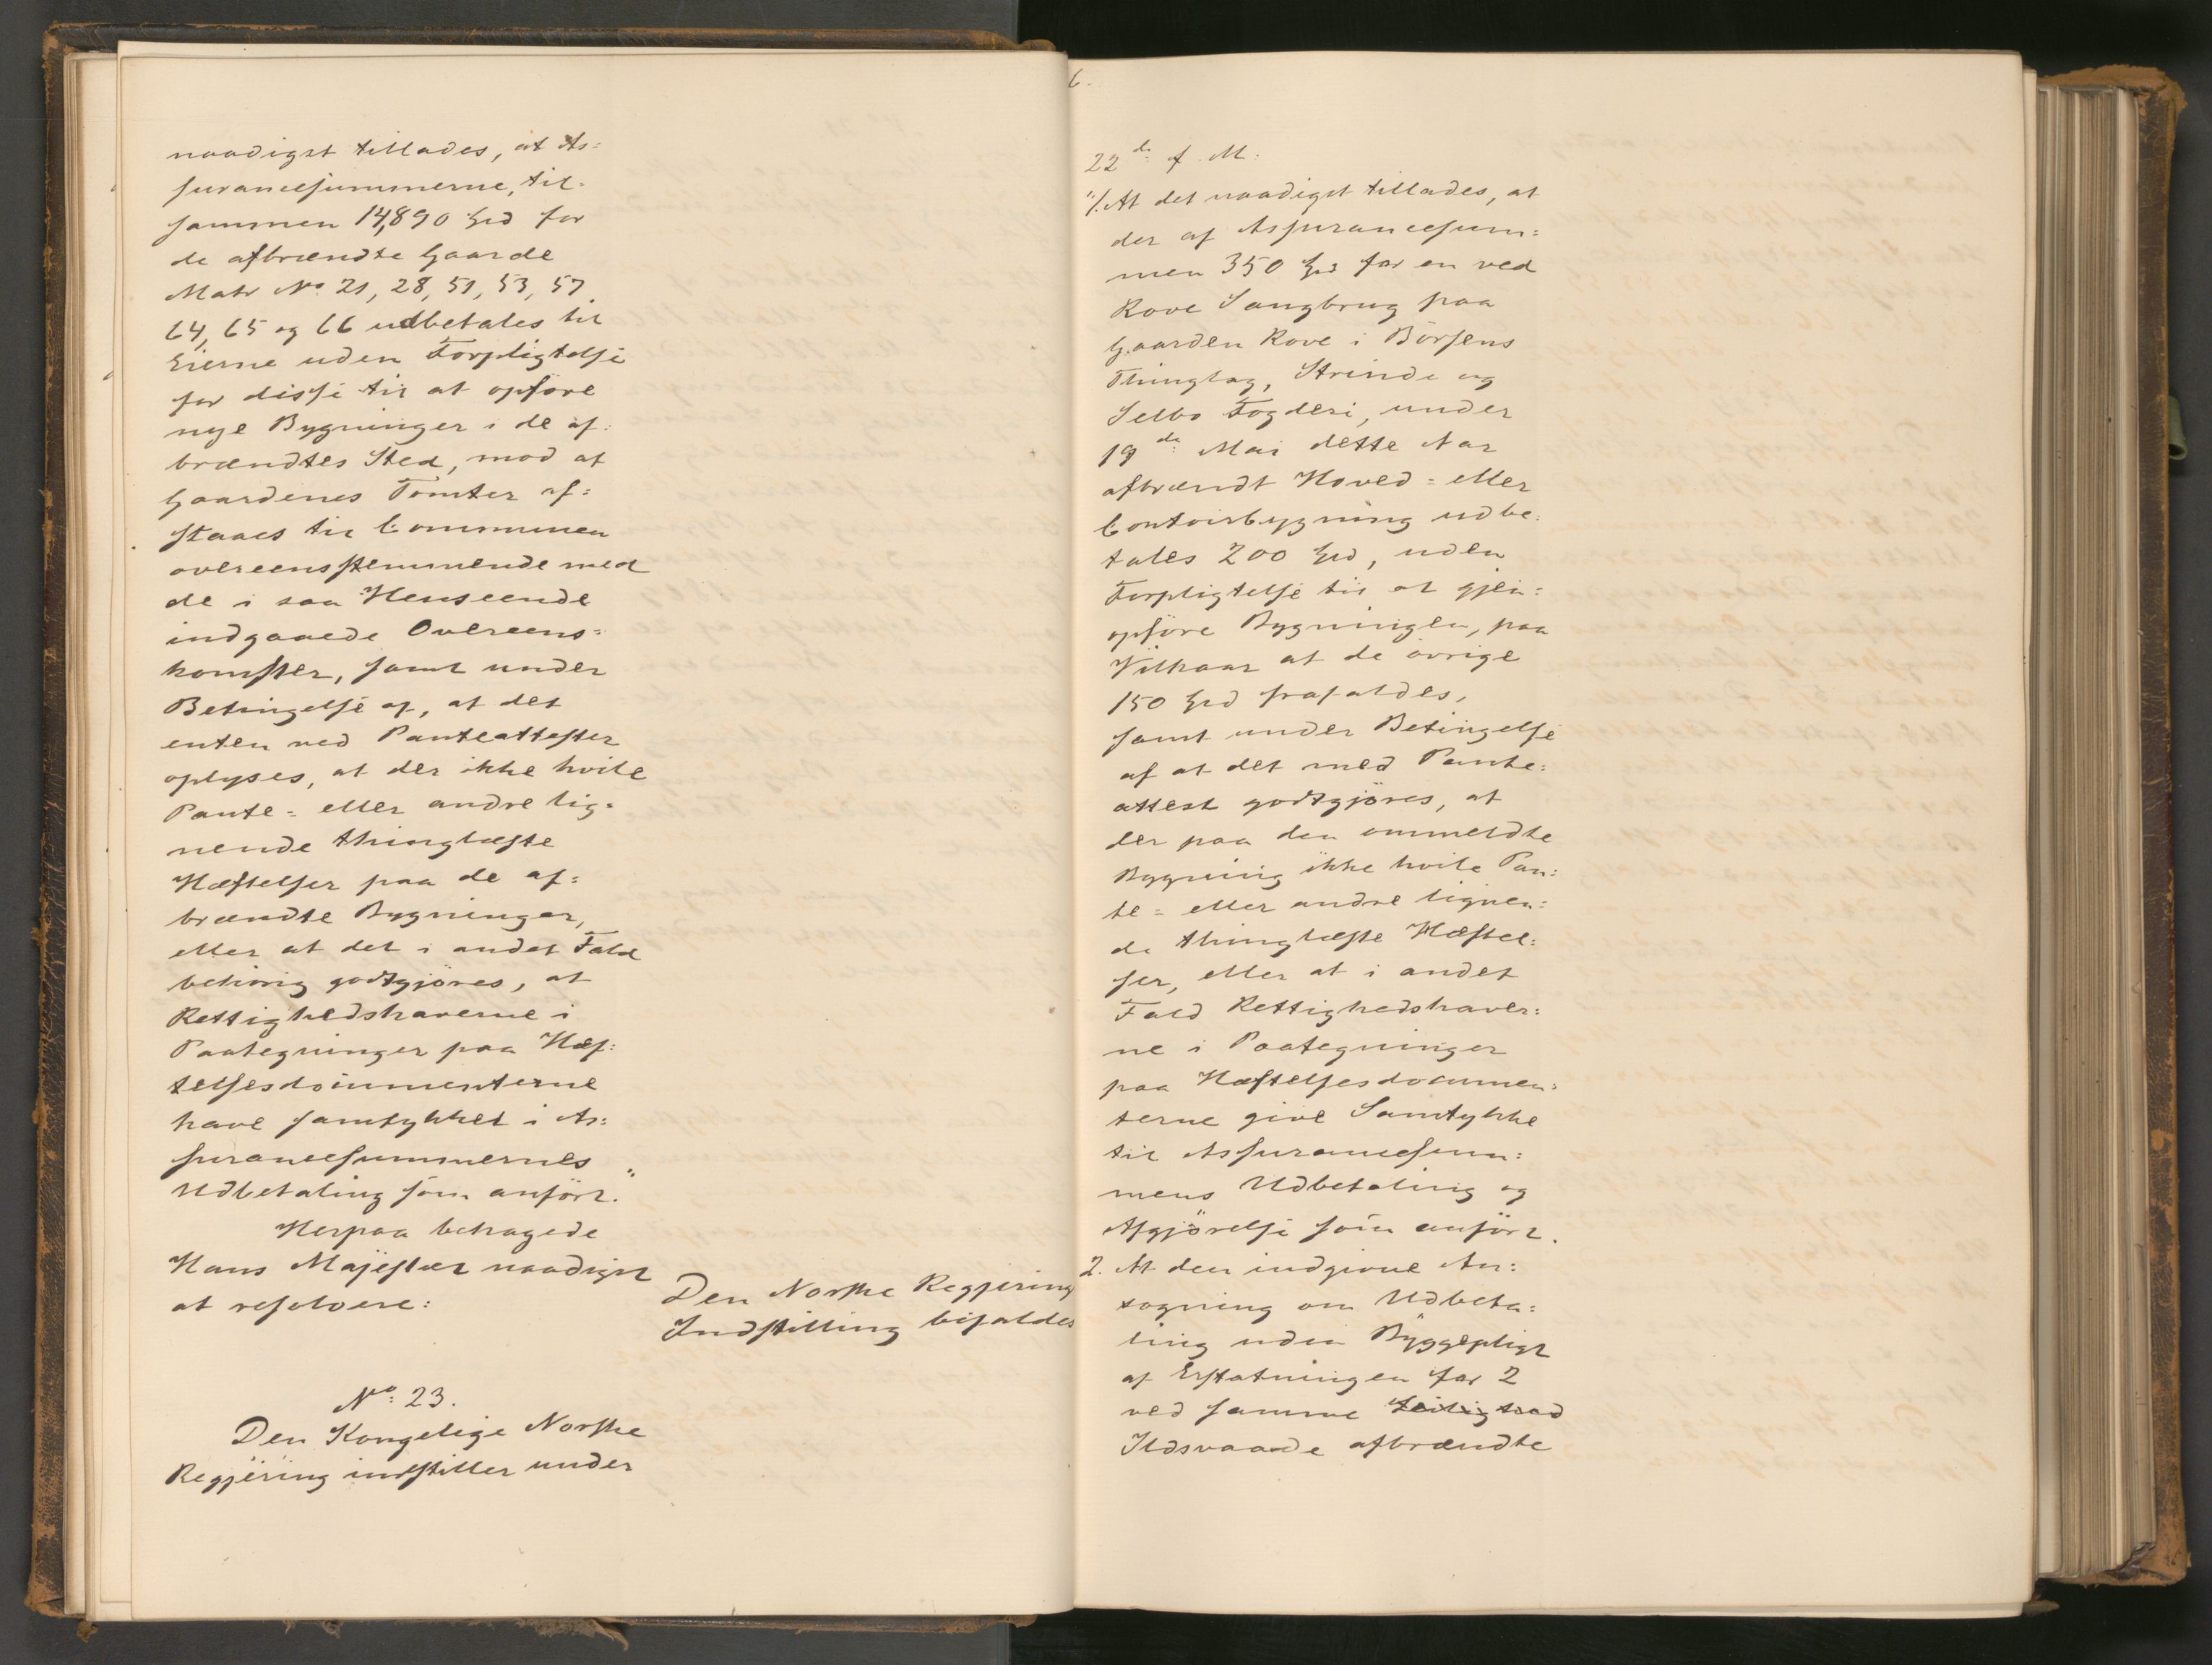 naadigst tillades, at As=
surancesummerne, til=
sammen 14,890 Spd for
de afbrændte Gaarde
Matr No 21, 28, 51, 53, 57,
64, 65 og 66 udbetales til
Eierne uden Forpligtelse
for disse til at opføre
nye Bygninger i de af=
brændtes Sted, mod at
Gaardenes Tomter af=
staaes til Communen
overeensstemmende med
de i saa Henseende
indgaaede Overeens=
komster, samt under
Betingelse af, at det
enten ved Panteattester
oplyses, at der ikke hvile
Pante= eller andre lig=
nende thinglæste
Hæftelser paa de af=
brændte Bygninger,
eller at det i andet Fald
behörig godtgjöres, at
Rettighedshaverne i
Paategninger paa Hæf=
telsesdocumenterne
have samtykket i As=
surancesummernes
Udbetaling som anfört."
Herpaa behagede
Hans Majestæt naadigst
at resolvere:
Den Norske Regjering
Indstilling bifaldes
No: 23.
Den Kongelige Norske
Regjering indstiller under
6.
22de f. M:
"1. At det naadigst tillades, at
der af Assurancesum=
men 350 Spd for en ved
Rove Saugbrug paa
Gaarden Rove i Börsens
Thinglag, Strinde og
Selbo Fogderi, under
19de Mai dette Aar
afbrændt Hoved= eller
Contoirbygning udbe=
tales 200 Spd, uden
Forpligtelse til at gjen=
opföre Bygningen, paa
Vilkaar at de övrige
150 Spd frafaldes,
samt under Betingelse
af at det med Pante=
attest godtgjöres, at
der paa den ommeldte
Bygning ikke hvile Pan=
te= eller andre lignen=
de thinglæste Hæftel=
ser, eller at i andet
Fald Rettighedshaver=
ne i Paategninger
paa Hæftelsesdocumen=
terne give Samtykke
til Assurancesum=
mens Udbetaling og
Afgjörelse som anfört.
2. At den indgivne An=
sogning om Udbeta=
ling uden Byggepligt
af Erstatningen for 2
ved samme Leilighed
Ildsvaade afbrændte